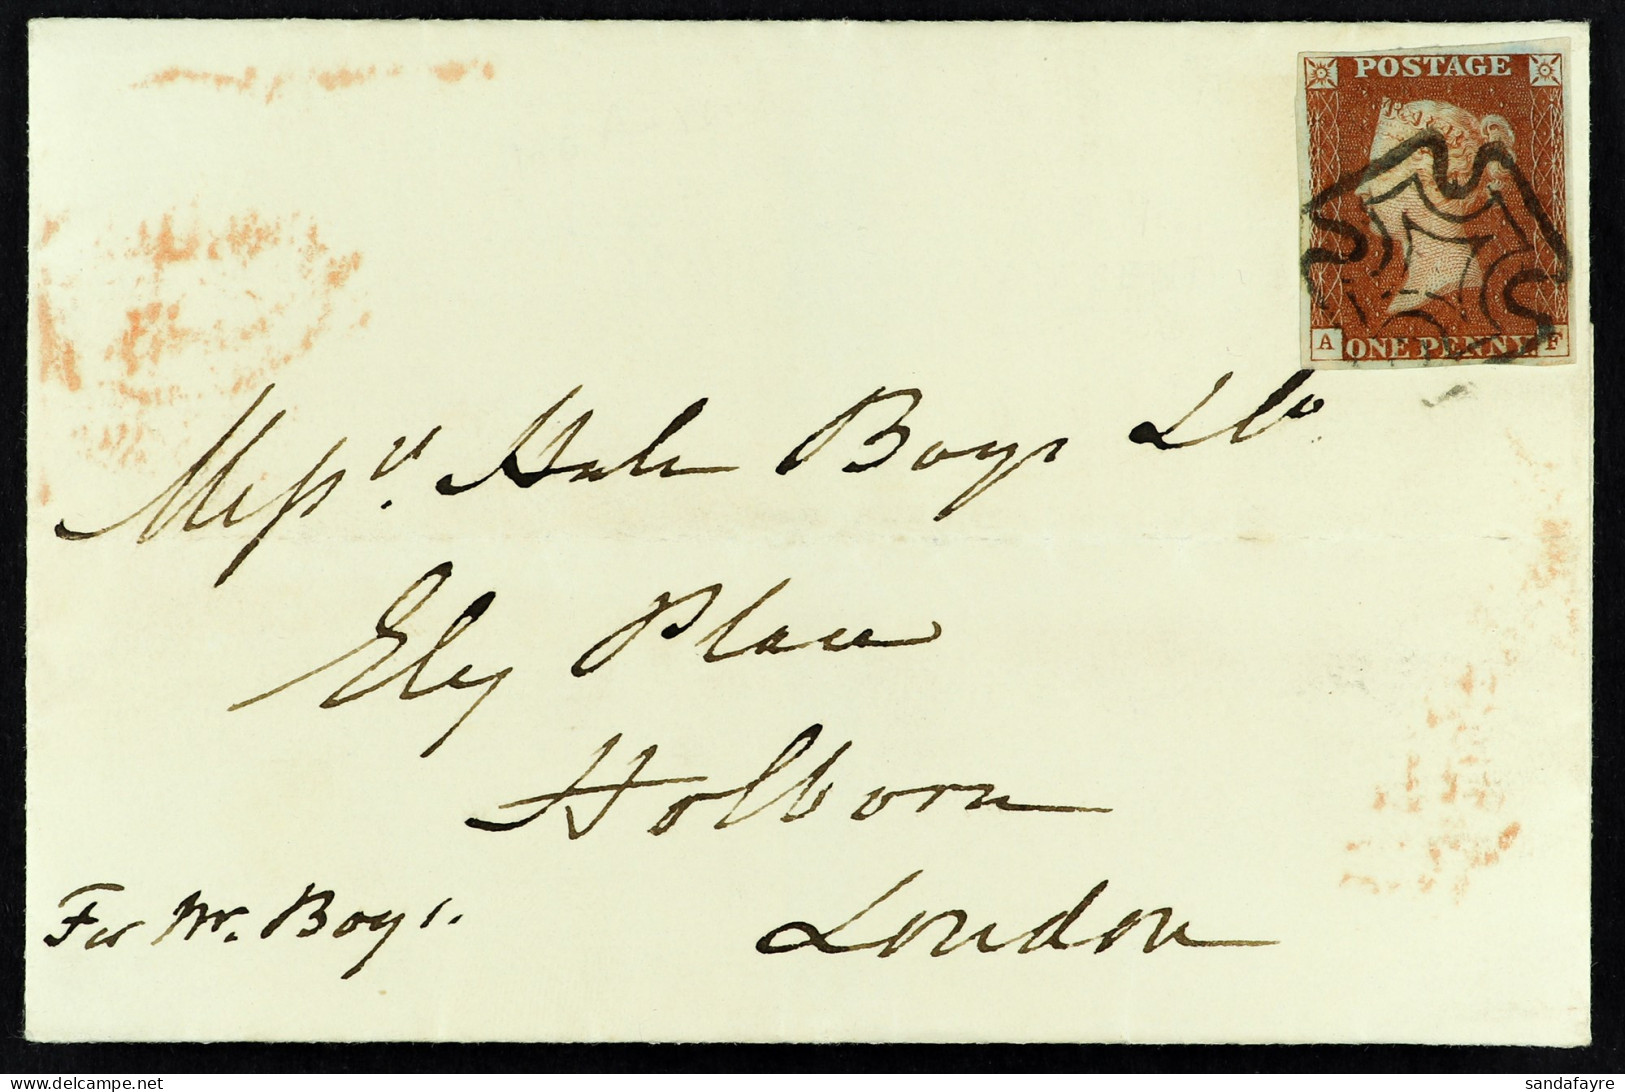 POSTAGE
A ONE PENNY F
Messrs. Hale Boys &Co
Ely Place
Holborn
London
For Mr. Boys.
sandafayre